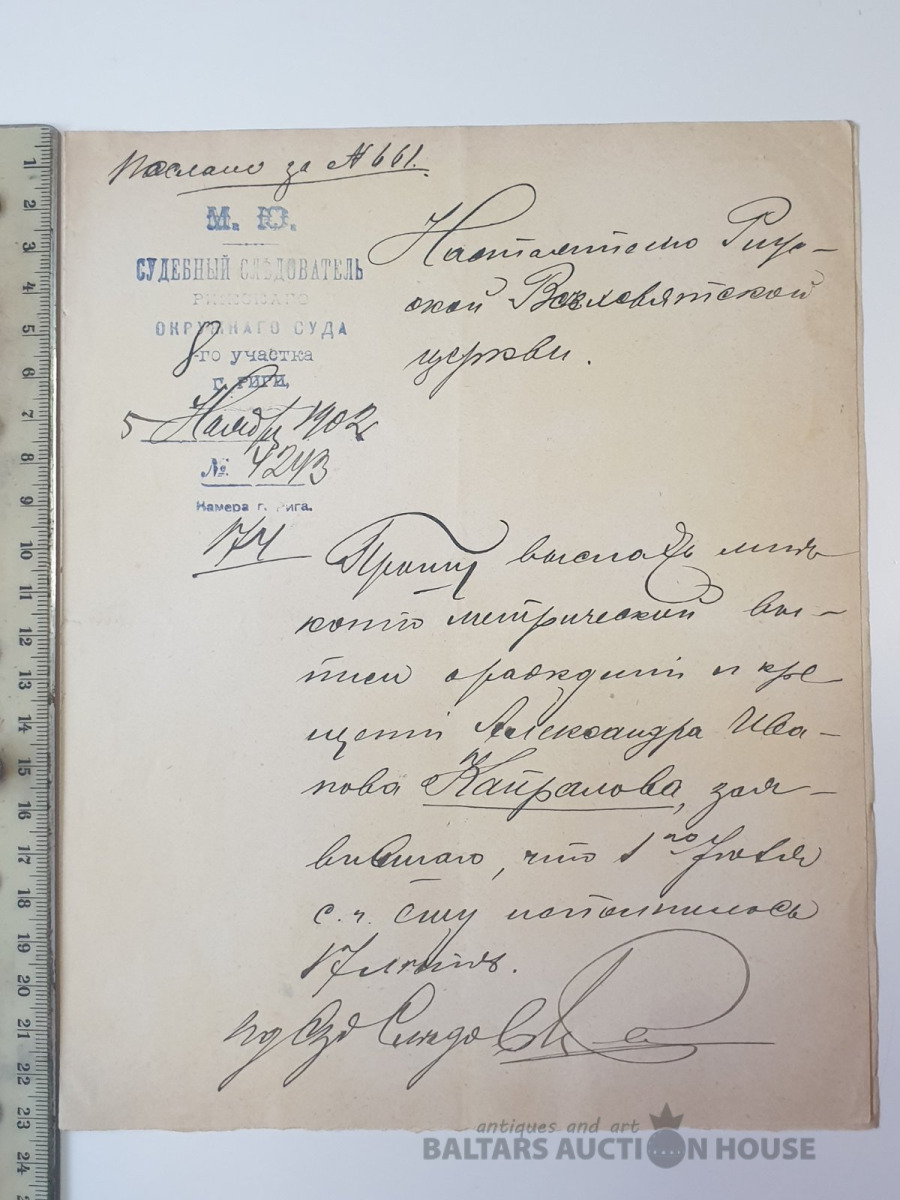 Послано за № 661.
М. Ю.
СУДЕБНЫЙ СЛѢДОВАТЕЛЬ
РИЖСКАГО
ОКРУЖНАГО СУДА
8-го участка
г. РИГИ,
5 Ноября 1902
№ 4243
Камера г. Рига.
174
Настоятелю Риж-
ской Всехсвятской
церкви.
Прошу выслать мнѣ
копію метрической вы-
писи о рожденіи и кре
щеніи Александра Ива-
нова Кайралова, зая-
вившаго, что 1го Іюля
с. г. ему исполнилось
17 лѣтъ.
Суд Слѣдов
1
2
3
4
5
6
7
8
9
10
11
12
13
14
15
16
17
18
19
20
21
22
23
24
antiques and art
BALTARS AUCTION HOUSE